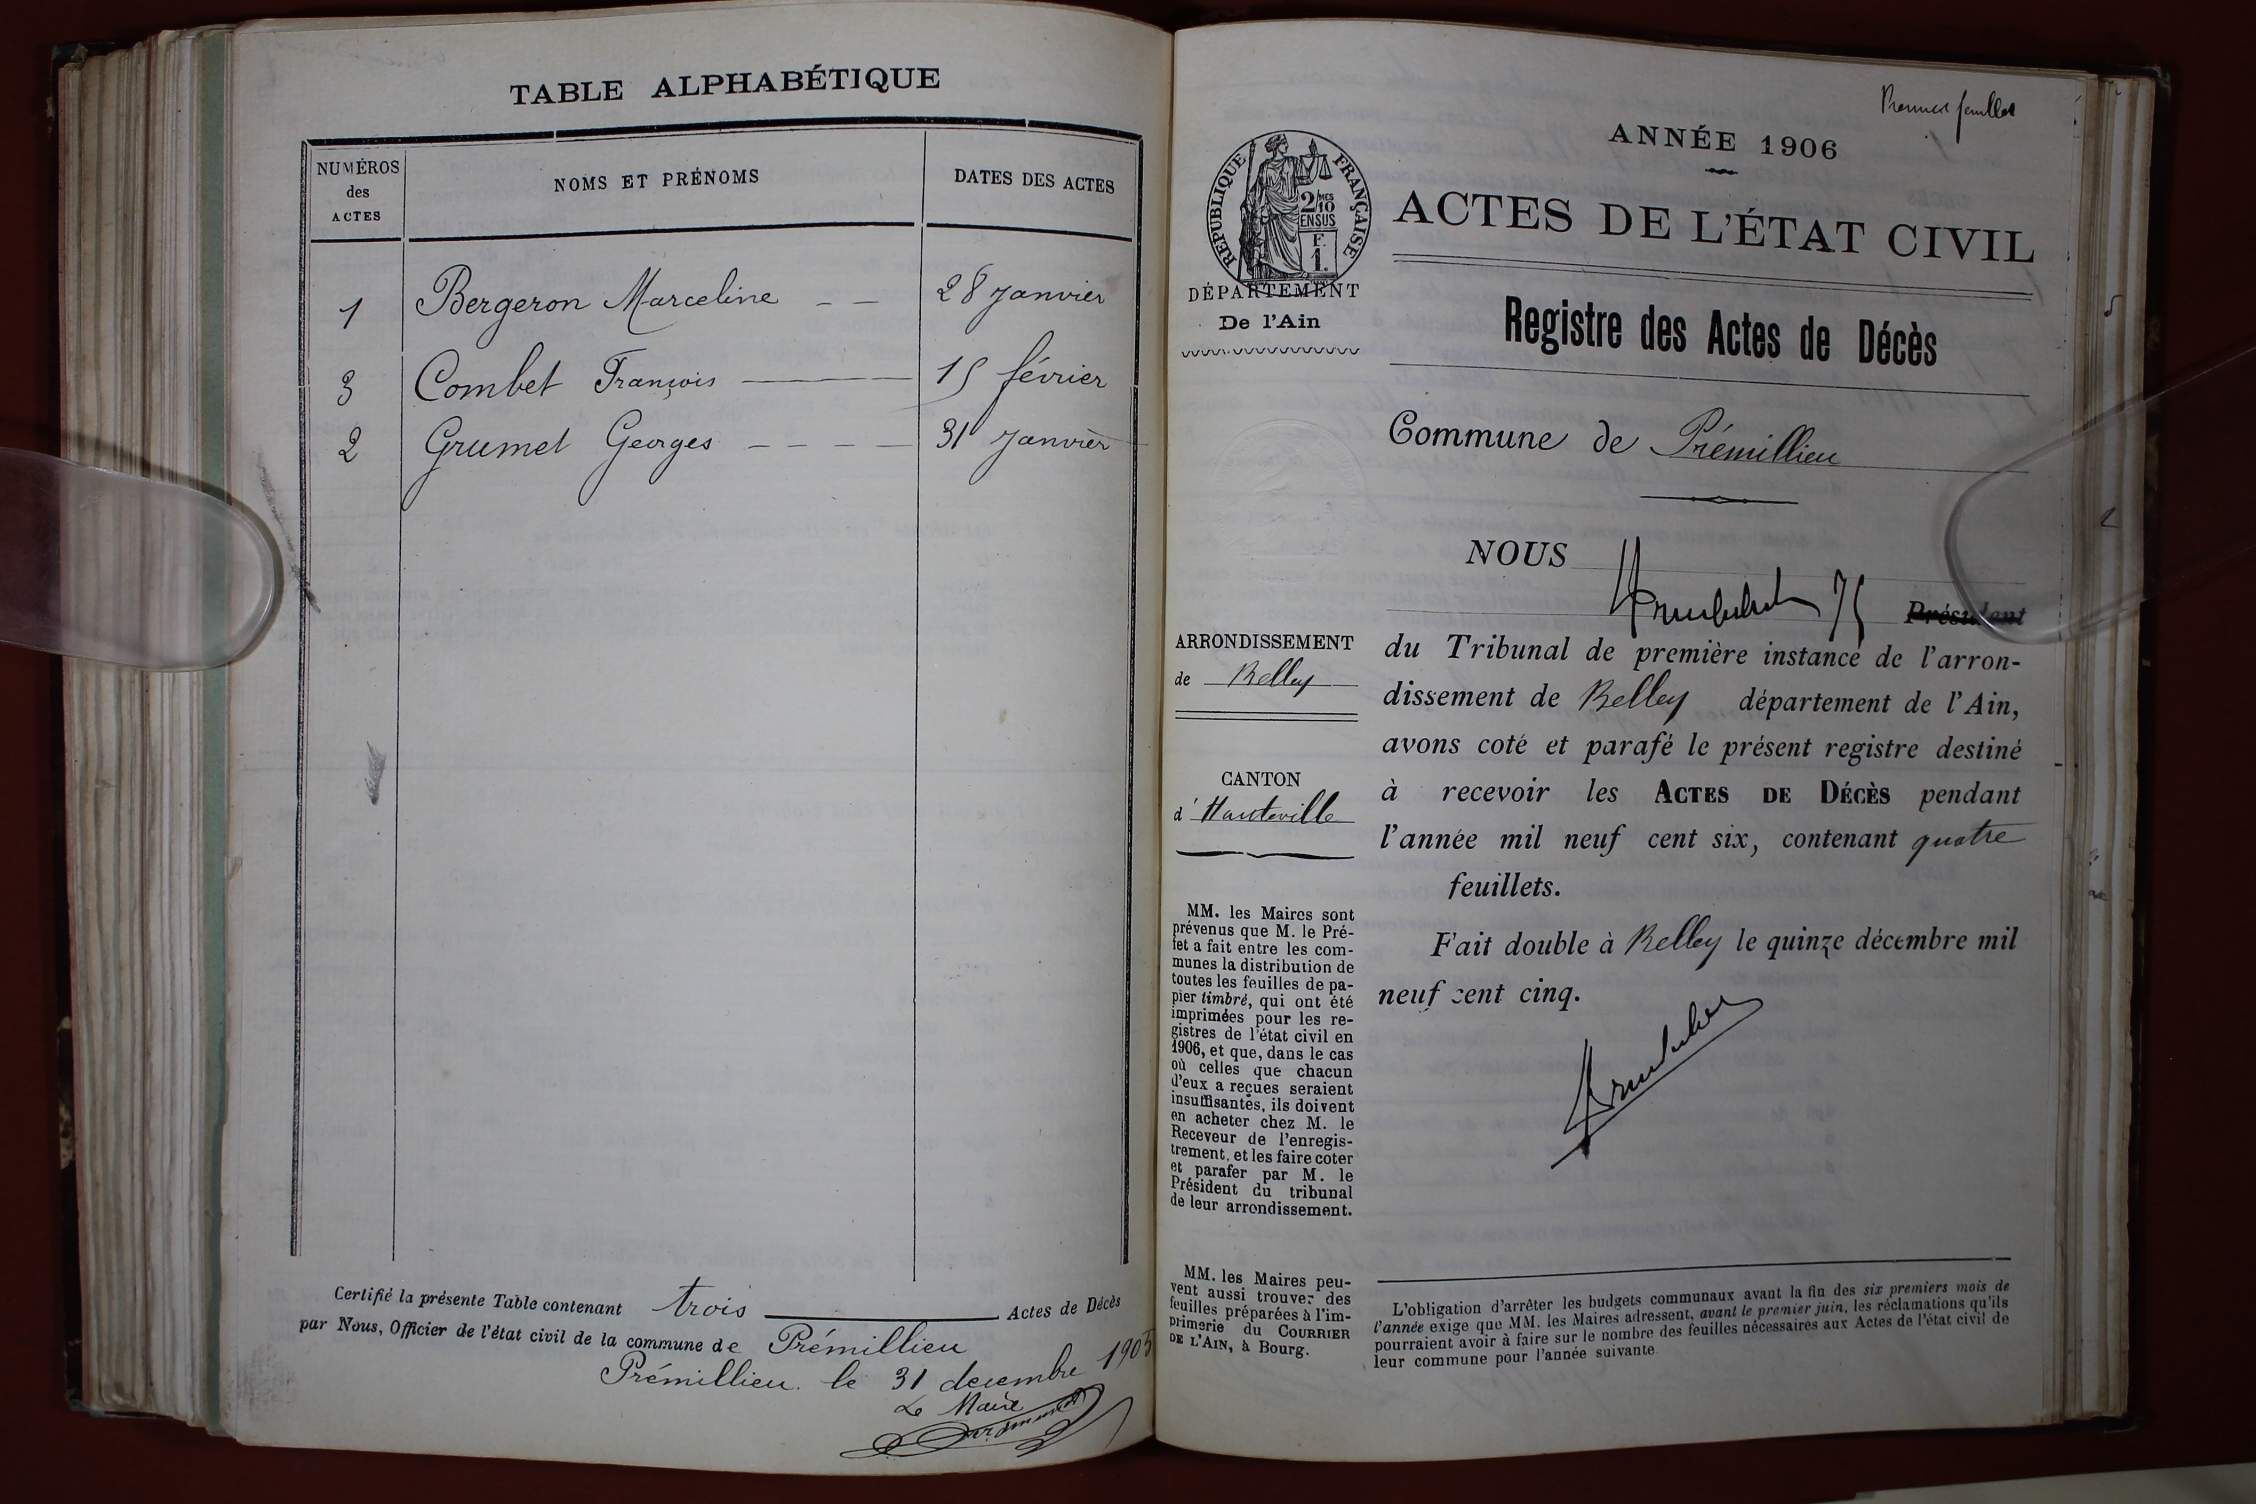 TABLE ALPHABÉTIQUE
NUMÉROS
des
ACTES
NOMS ET PRÉNOMS
DATES DES ACTES
1 Bergeron Marceline - - 28 Janvier
3 Combet François — 15 février
2 Grumet Georges - - - - 31 Janvier
Certifié la présente Table contenant trois — Actes de Décès
par Nous, Officier de l'état civil de la commune de Prémillieu
Prémillieu le 31 decembre 1905
Le Maire
Premier feuillet
ANNÉE 1906
ACTES DE L'ÉTAT CIVIL
RÉPUBLIQUE FRANÇAISE
2/10MES
EN SUS
F.
1.
DÉPARTEMENT
De l'Ain
Registre des Actes de Décès
Commune de Prémillieu
NOUS
Président
ARRONDISSEMENT
de Belley
CANTON
d'Hauteville
du Tribunal de première instance de l'arron-
dissement de Belley département de l'Ain,
avons coté et parafé le présent registre destiné
à recevoir les ACTES DE DÉCÈS pendant
l'année mil neuf cent six, contenant quatre
feuillets.
Fait double à Belley le quinze décembre mil
neuf cent cinq.
MM. les Maires sont
prévenus que M. le Pré-
fet a fait entre les com-
munes la distribution de
toutes les feuilles de pa-
pier timbré, qui ont été
imprimées pour les re-
gistres de l'état civil en
1906, et que, dans le cas
où celles que chacun
d'eux a reçues seraient
insuffisantes, ils doivent
en acheter chez M. le
Receveur de l'enregis-
trement, et les faire coter
et parafer par M. le
Président du tribunal
de leur arrondissement.
MM. les Maires peu-
vent aussi trouver des
feuilles préparées à l'im-
primerie du COURRIER
DE L'AIN, à Bourg.
L'obligation d'arrêter les budgets communaux avant la fin des six premiers mois de
l'année exige que MM. les Maires adressent, avant le premier juin, les réclamations qu'ils
pourraient avoir à faire sur le nombre des feuilles nécessaires aux Actes de l'état civil de
leur commune pour l'année suivante